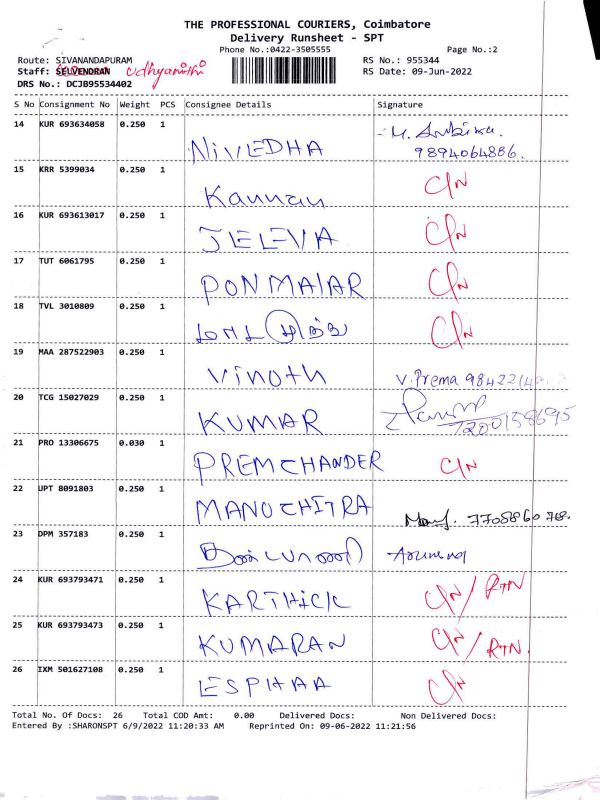 THE PROFESSIONAL COURIERS, Coimbatore
Delivery Runsheet - SPT
Phone No.:0422-3505555 Page No.:2
Route: SIVANANDAPURAM RS No.: 955344
Staff: SELVENDRAN Udhyanithi RS Date: 09-Jun-2022
DRS No.: DCJB95534402
S No Consignment No Weight PCS Consignee Details Signature
14 KUR 693634058 0.250 1 NIVEDHA 9894064886.
15 KRR 5399034 0.250 1 Kannan C/N
16 KUR 693613017 0.250 1 JELEVA C/N
17 TUT 6061795 0.250 1 PONMALAR C/N
18 TVL 3010809 0.250 1 C/N
19 MAA 287522903 0.250 1 Vinoth V. Prema
20 TCG 15027029 0.250 1 KUMAR
21 PRO 13306675 0.030 1 PREMCHANDER C/N
22 UPT 8091803 0.250 1 MANOCHITRA
23 DPM 357183 0.250 1
24 KUR 693793471 0.250 1 KARTHICK C/N / RTN
25 KUR 693793473 0.250 1 KUMARAN C/N / RTN.
26 IXM 501627108 0.250 1 C/N
Total No. Of Docs: 26 Total COD Amt: 0.00 Delivered Docs: Non Delivered Docs:
Entered By :SHARONSPT 6/9/2022 11:20:33 AM Reprinted On: 09-06-2022 11:21:56